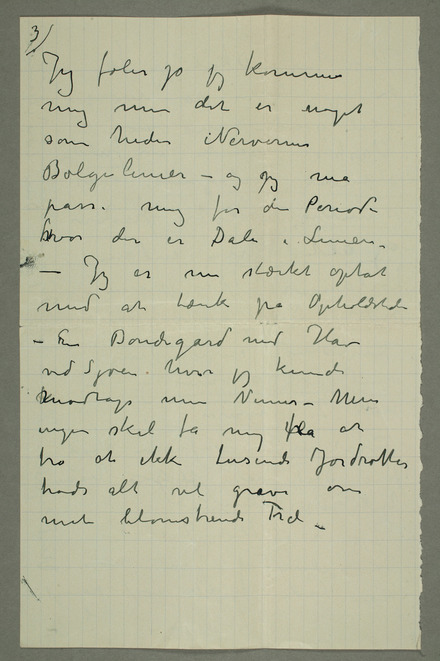 3)
Jeg føler jo jeg kommer
mig men det er noget
som heder Nervernes
Bølgelinier – og jeg må
passe mig for den Periode
hvor der er Dale i Linien –
– Jeg er nu stærkt optat
med at tænke på Opholdsted
– En Bondegård med Have
ved Sjøen. hvor jeg kunde
modtage mine Venner – Men
ingen skal få mig til at
tro at ikke tusende Jordrotter
trods alt vil grave om
mit blomstrende Træ –